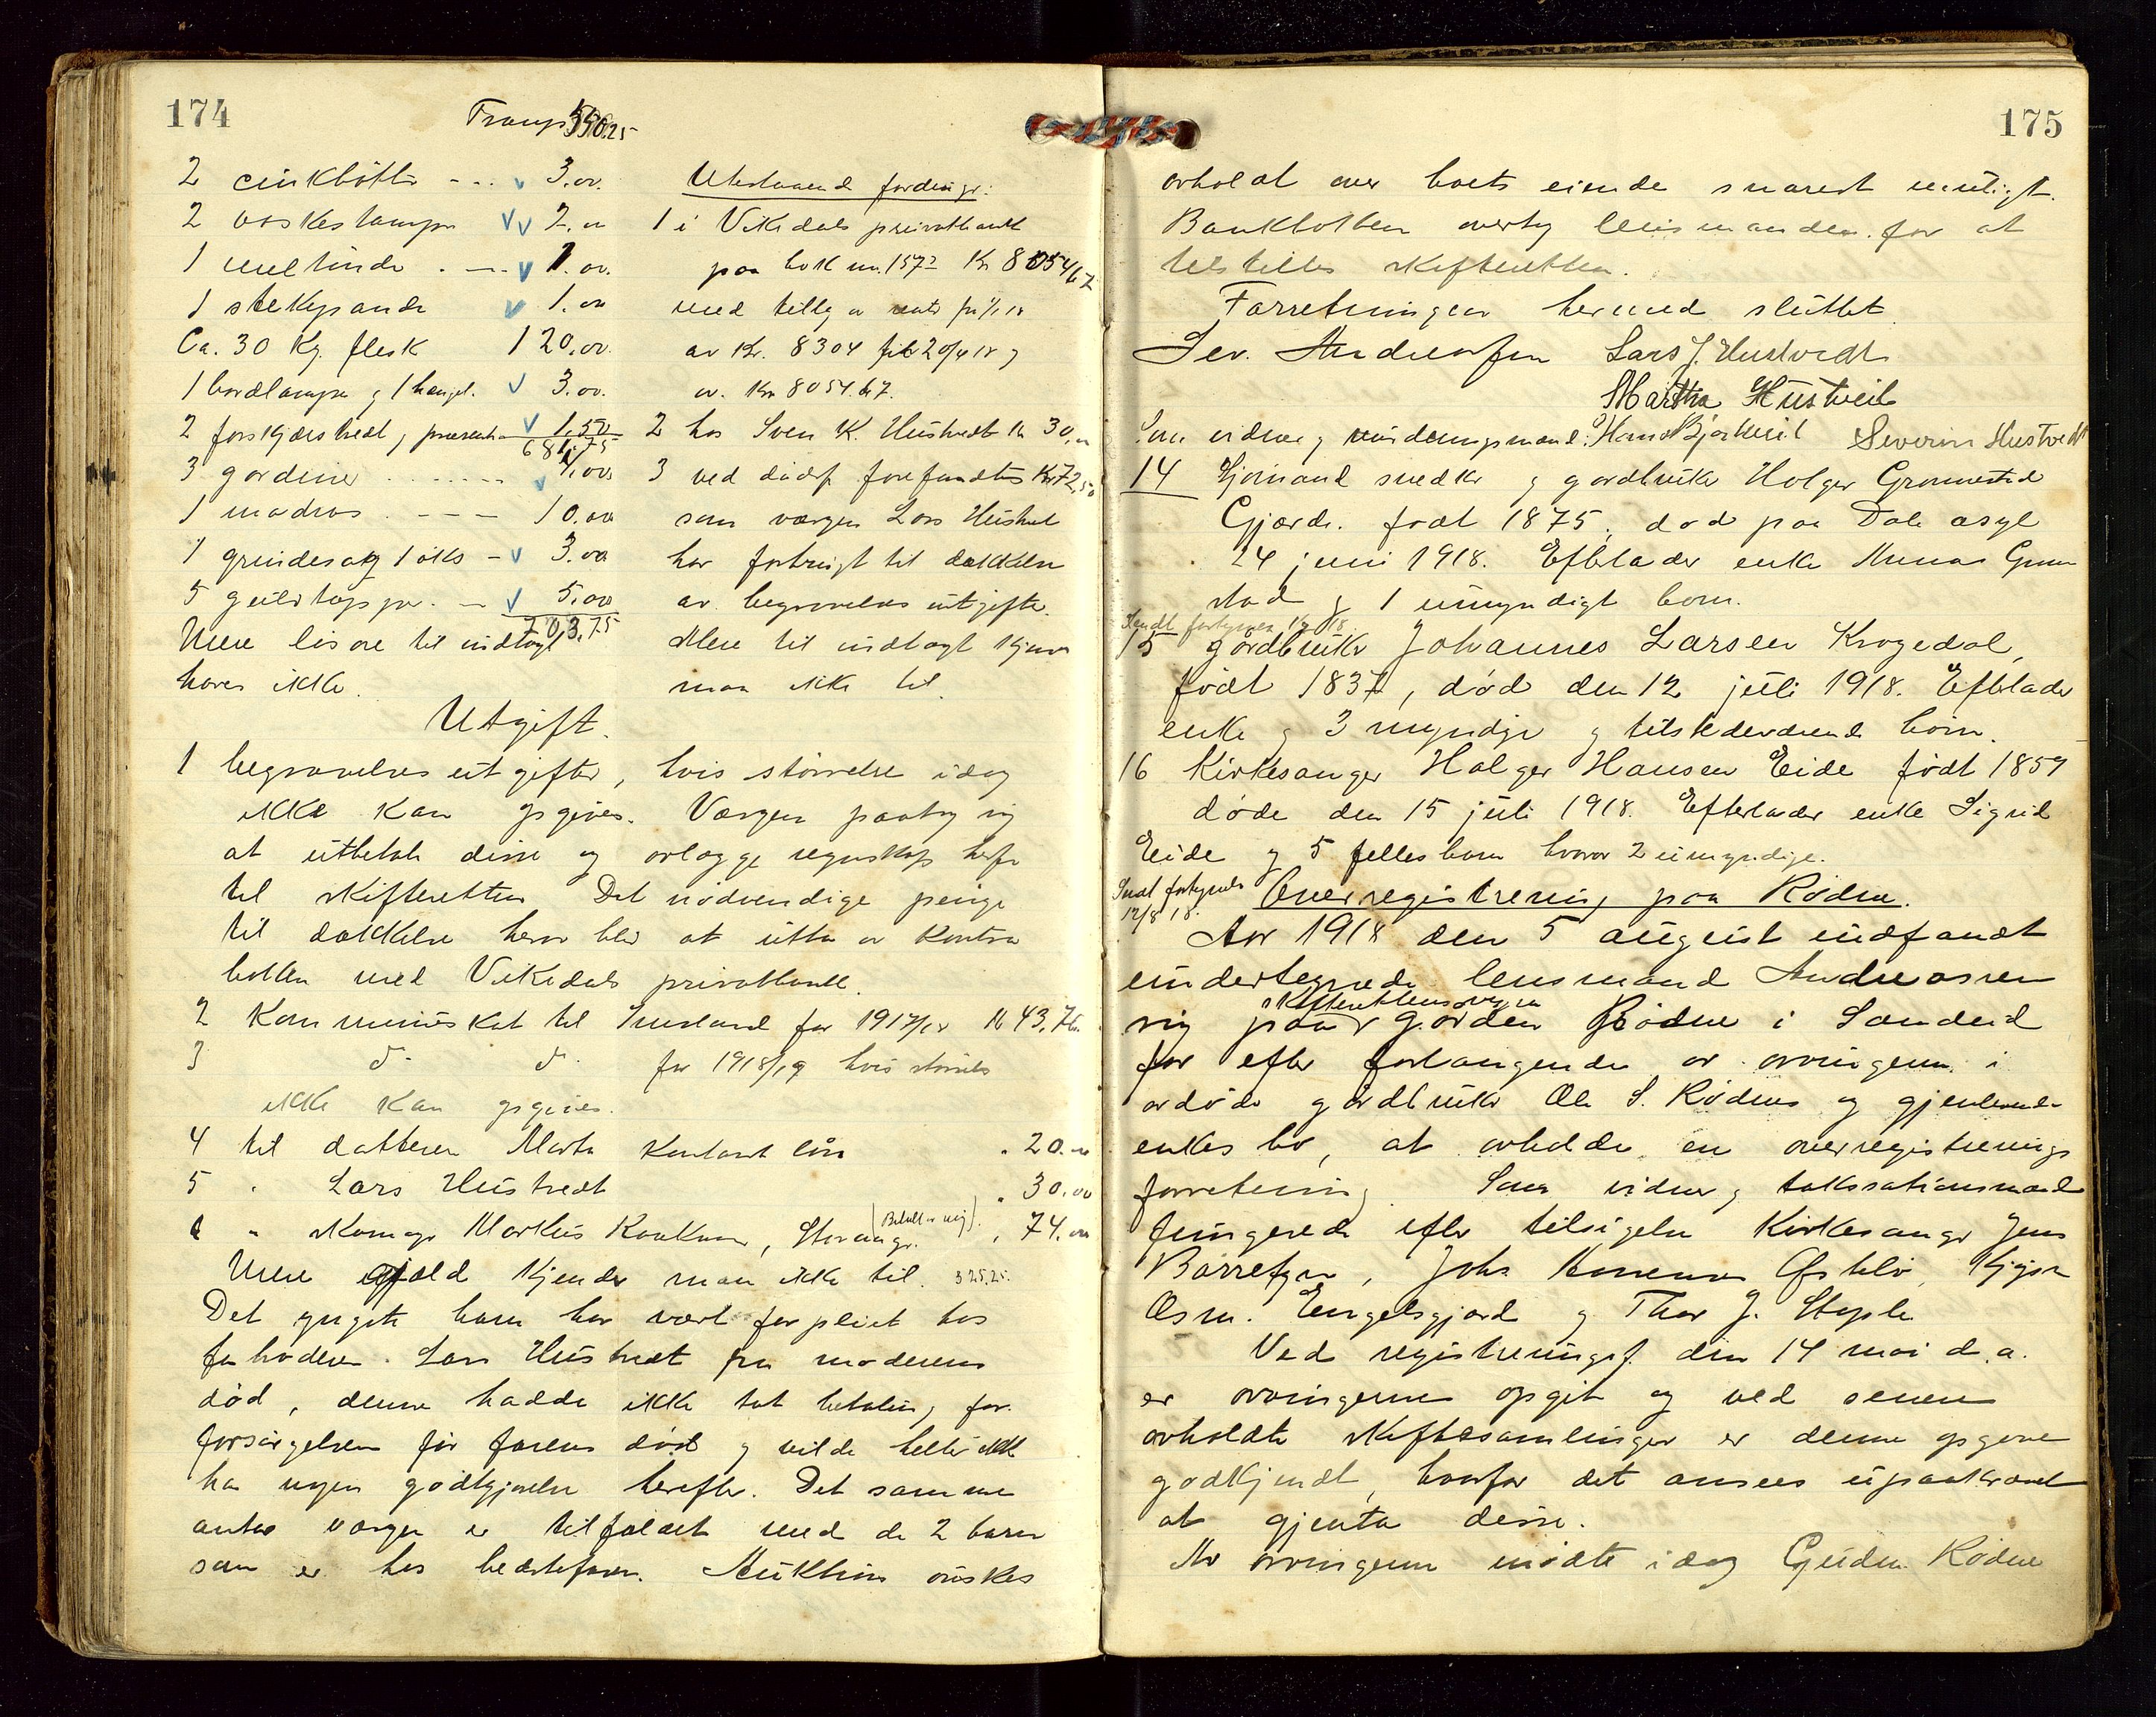 174
Transp 550.25
2 cinkbötter - - . v 3.00.
2 vaskestamper vv 2.00
1 meltönde . - - v 1.00.
1 stekepande v 1.00
Ca. 30 Kg. flesk 120,00.
1 bordlampe og 1 hængel. v 3.00.
2 forskjærsbredt og presenter v 1.50
681,75
3 gardiner . . . . . . . v 4,00
1 madras . - - - 10.00
1 grindesag og 1 øks - v 3.00
5 v 5.00
703.75
Mere løsøre til indtægt
haves ikke.
Utestaaende fordringer:
1 i Vikedals privatbank
paa bok nr. 1572 Kr 8054,67
med tillæg av rente fra 1/1 18
av Kr. 8304 til 20/4 18 og
av Kr 8054.67.
2 hos Sven K. Hustvedt Kr 30,00
3 ved dødsf. forefandtes Kr 72,50
som værgen Lars Hustvedt
har forbrugt til dækkelse
av begravelses utgifter.
Mere til indtægt kjender
man ikke til.
Utgift.
1 begravelses utgifter, hvis størrelse idag
ikke kan opgives. Værgen paatog sig
at utbetale disse og avlægge regnskap herfor
til skifteretten. Det nödvendige penge
til dækkelse herav blir at utta av Kontra
boken med Vikedals privatbank.
2 Kommuneskat til Imsland for 1917/18 Kr 43,76.
3 d- d- for 1918/19 hvis størrelse
ikke kan opgives.
4 til datteren Marta Kontant lån . 20.00
5 " Lars Hustvedt " 30.00
6 " skomager Markus , (Betalt av mig). , 74.00
Mere gjæld kjender man ikke til. 325,25.
Det yngste barn har vært forpleiet hos
farbroderen Lars Hustvedt fra moderens
död, denne hadde ikke tat betaling for
forsørgelsen før farens död og vilde heller ikke
ha nogen godtgjørelse herefter. Det samme
antas værgen er tilfældet med de 2 barn
som er hos bedstefaren. Auktion ønskes
175
avholdt over boets eiende snarest muligt.
Bankboken overtog lensmanden for at
tilstilles skifteretten.
Forretningen hermed sluttet.
Sev. Andreassen Lars J. Hustvedt
Martha Hustveit
Som vidner og vurderingsmænd: Hans Bjorkveit Severin Hustvedt
14 Gjørmand snedker og gardbruker Holger Grønnestad
Gjærde. født 1875, død paa Dale asyl
24 juni 1918. Efterlader enke Munas Grønne
stad og 1 umyndigt barn.
15 gardbruker Johannes Larsen Krogedal,
født 1837, död den 12 juli 1918. Efterlader
enke og 3 myndige og tilstedeværende børn.
16 Kirkesanger Holger Hansen Eide født 1859
døde den 15 juli 1918. Efterlader enke Sigrid
Eide og 5 fellesbarn hvorav 2 umyndige.
12/8 18.
Overregistrering paa Rödne.
Aar 1918 den 5 august indfandt
undertegnede lensmand Andreassen
sig paa skifterettens vegne gården Rödne i Sandeid
for efter forlangende av arvingerne i
avdøde gårdbruker Ole S. Rødnes og gjenlevende
enkes bo, at avholde en overregistrerings
forretning. Som vidner og takstationsmænd
fungerede efter tilsigelse Kirkesanger Jens
, Johs ,
Osm. Engelsgjerd og Thor J. Steple.
Ved registreringsf. den 14 mai d.a.
er arvingerne opgit og ved senere
avholdte skiftesamlinger er denne opgave
godkjendt, hvorfor det ansees upaakrævet
at gjenta disse.
Av arvingerne mødte idag Gudm. Rödne